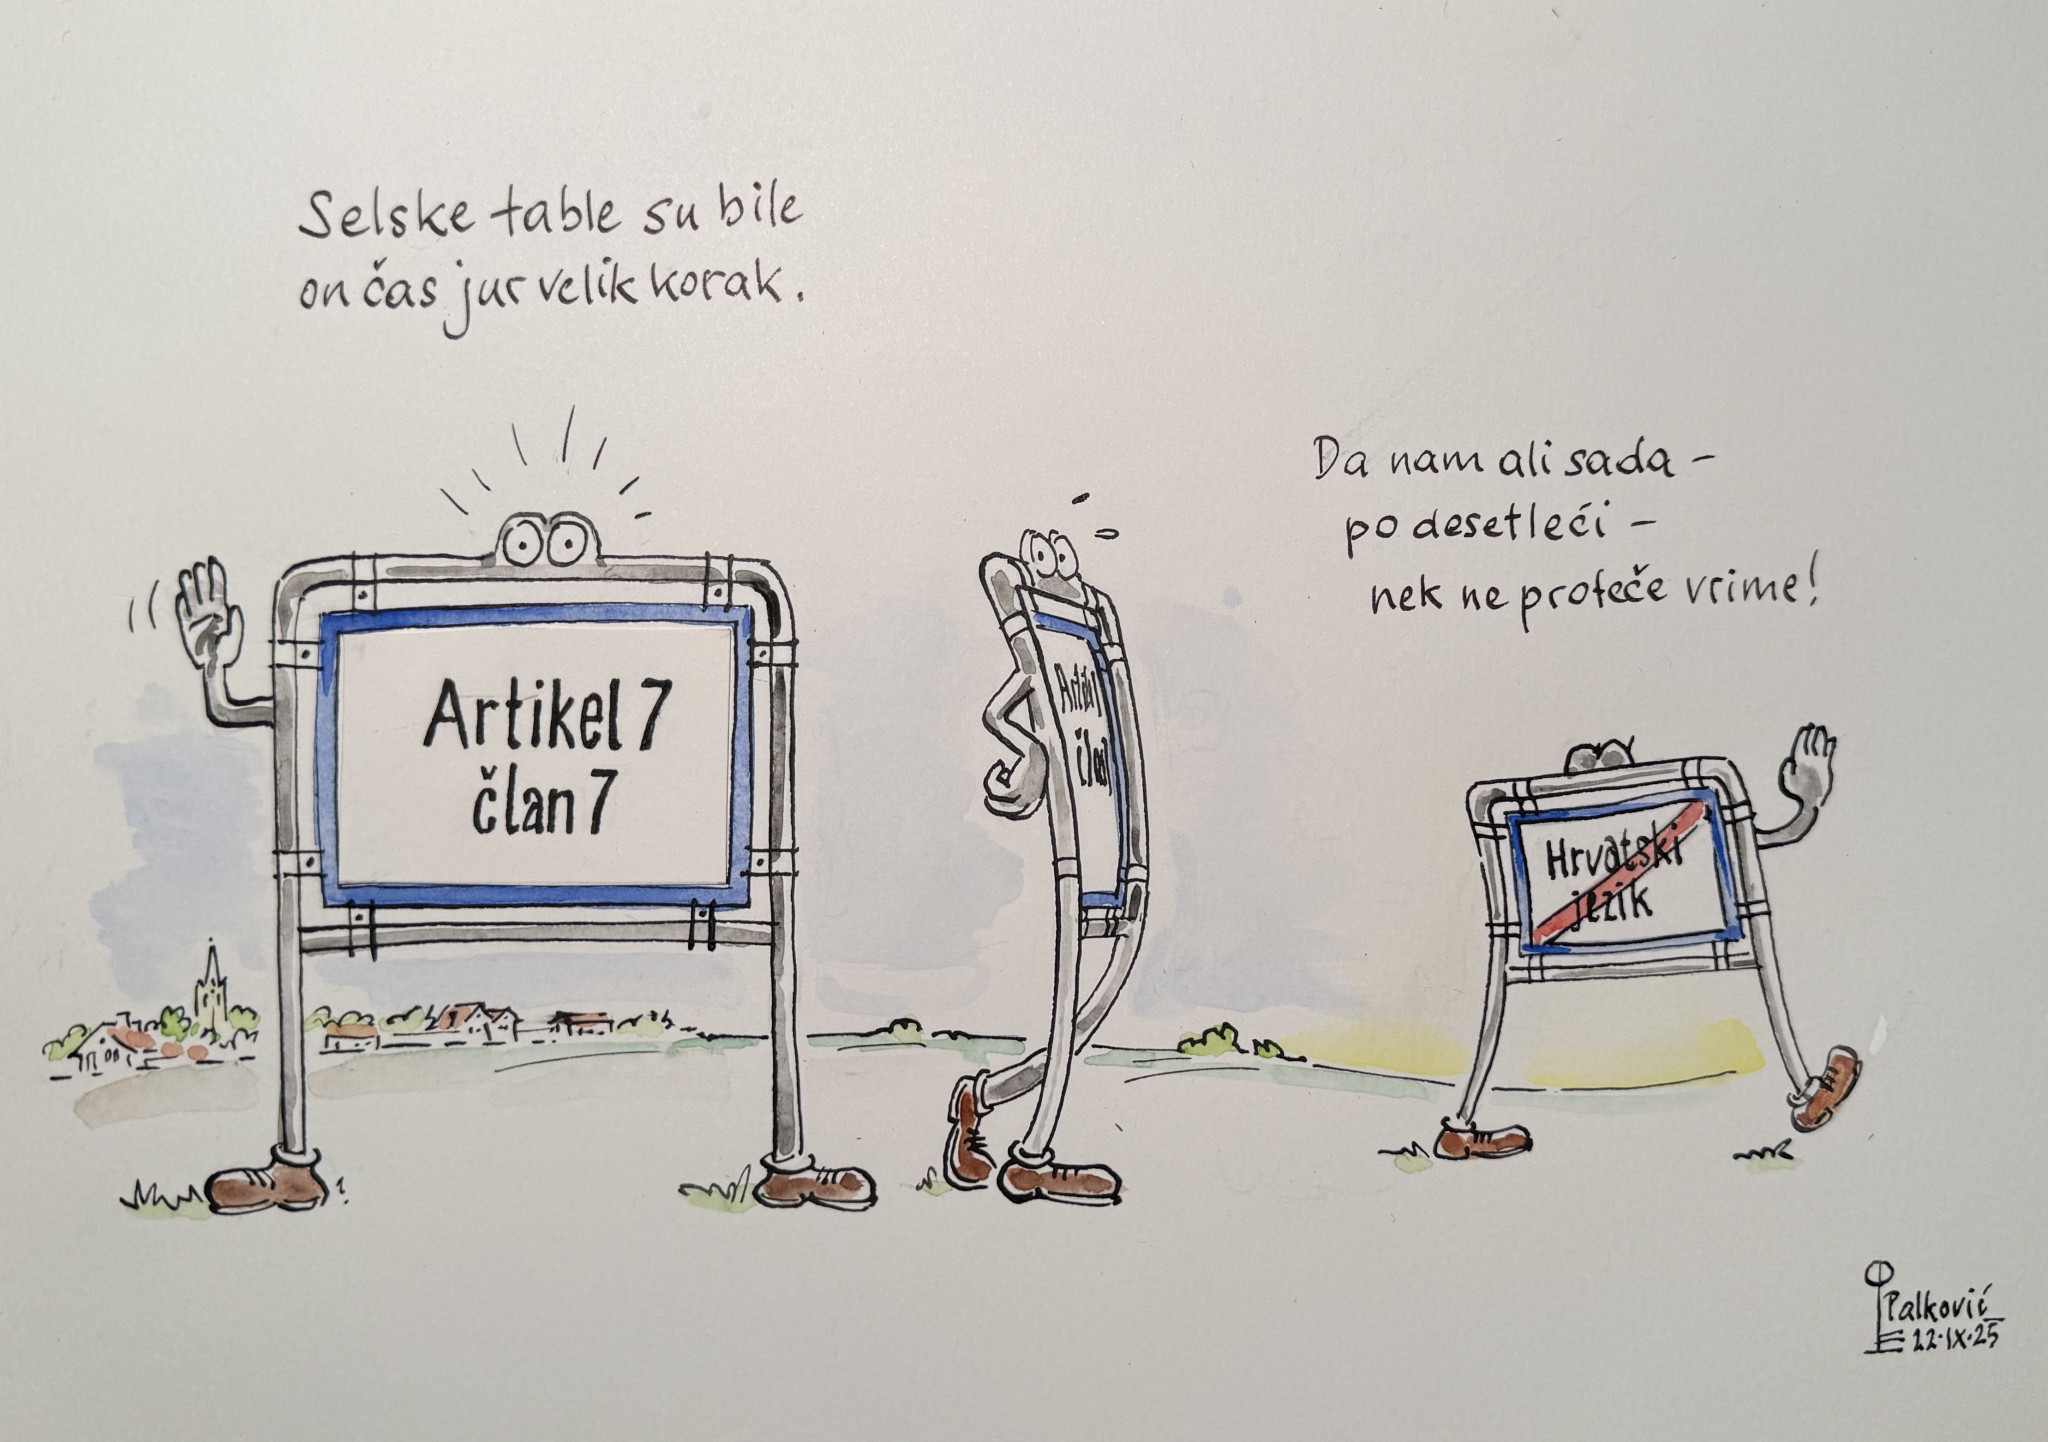 Selske table su bile
on čas jur velik korak.
Da nam ali sada –
po desetleći –
nek ne proteče vrime!
Artikel 7
član 7
Hrvatski
jezik
Palković
22·IX·25